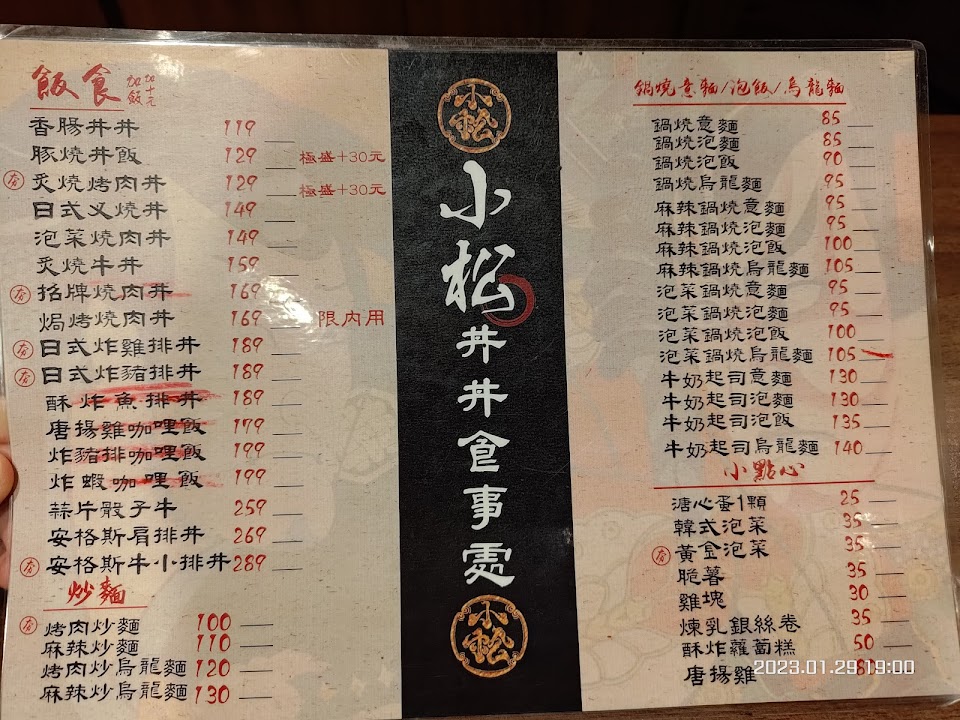 飯食 加飯加十元
香腸丼丼 119
豚燒丼飯 129 極盛+30元
炙燒烤肉丼 129 極盛+30元
日式叉燒丼 149
泡菜燒肉丼 149
炙燒牛丼 159
招牌燒肉丼 169
焗烤燒肉丼 169 限內用
日式炸雞排丼 189
日式炸豬排丼 189
酥炸魚排丼 189
唐揚雞咖哩飯 179
炸豬排咖哩飯 199
炸蝦咖哩飯 199
蒜片骰子牛 259
安格斯肩排丼 269
安格斯牛小排丼 289
炒麵
烤肉炒麵 100
麻辣炒麵 110
烤肉炒烏龍麵 120
麻辣炒烏龍麵 130
小松
小松丼丼食事處
小松
鍋燒意麵/泡飯/烏龍麵
鍋燒意麵 85
鍋燒泡麵 85
鍋燒泡飯 90
鍋燒烏龍麵 95
麻辣鍋燒意麵 95
麻辣鍋燒泡麵 95
麻辣鍋燒泡飯 100
麻辣鍋燒烏龍麵 105
泡菜鍋燒意麵 95
泡菜鍋燒泡麵 95
泡菜鍋燒泡飯 100
泡菜鍋燒烏龍麵 105
牛奶起司意麵 130
牛奶起司泡麵 130
牛奶起司泡飯 135
牛奶起司烏龍麵 140
小點心
溏心蛋1顆 25
韓式泡菜 35
黃金泡菜 35
脆薯 35
雞塊 30
煉乳銀絲卷 35
酥炸蘿蔔糕 50
唐揚雞
2023.01.29 19:00